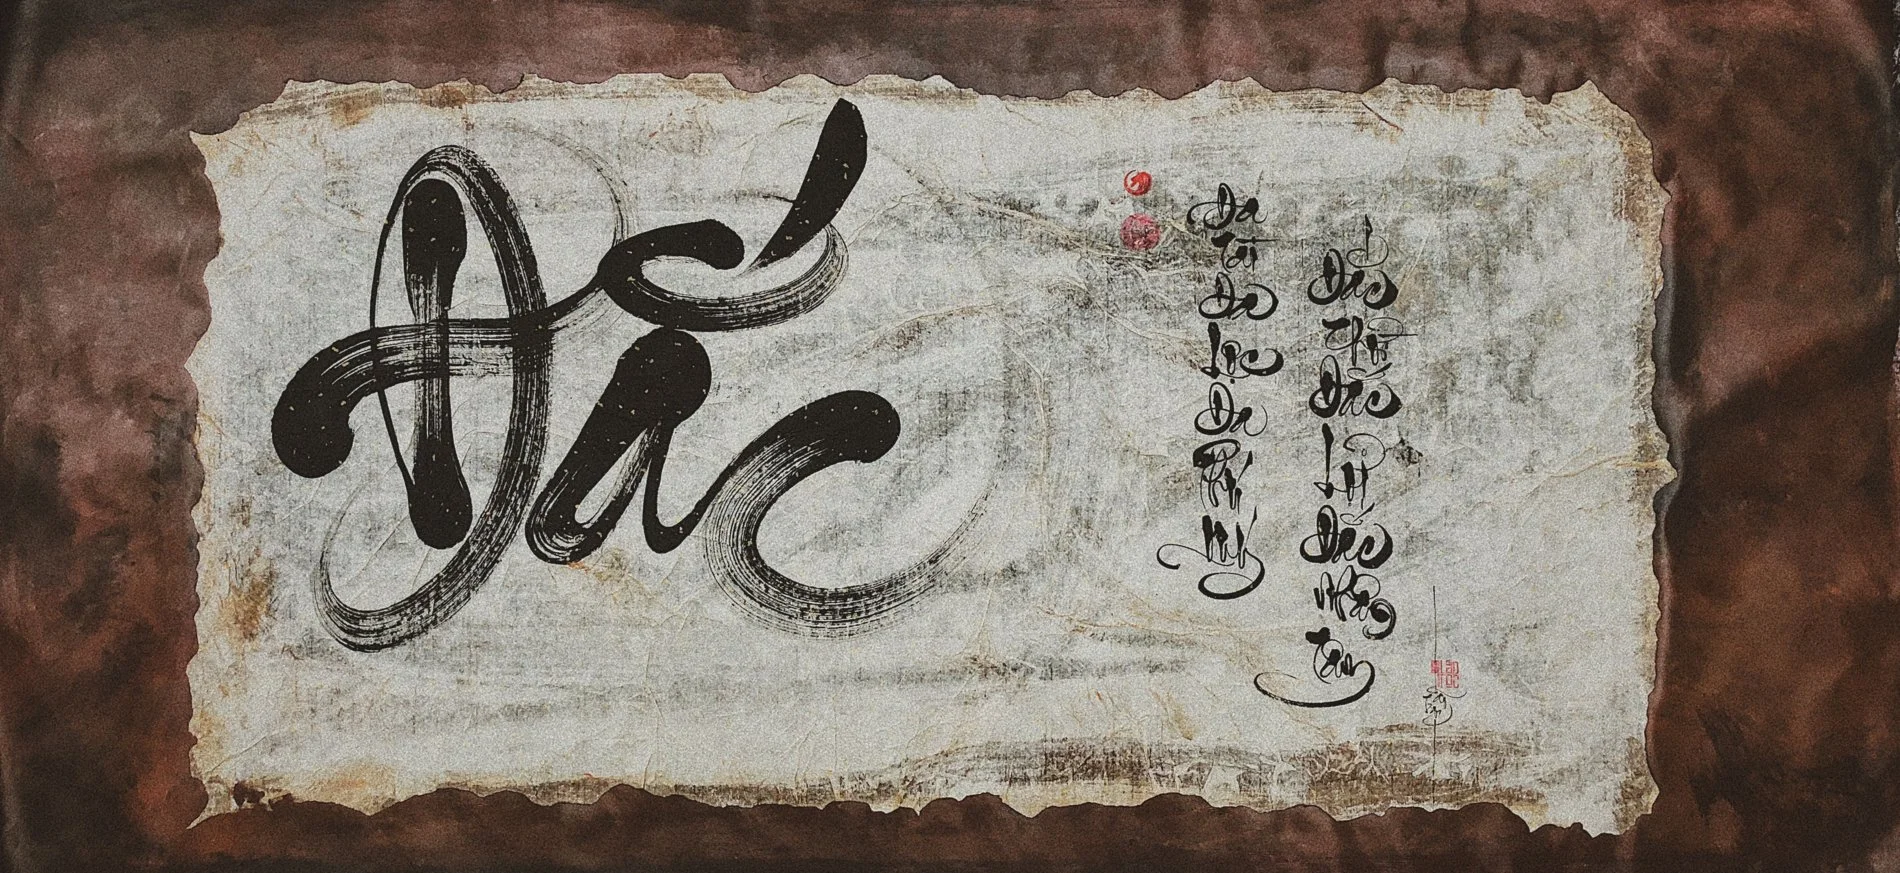 Đắc
Đa Tài Đa Lộc Đa Phú Quý
Đắc Thời Đắc Lợi Đắc Nhân Tâm